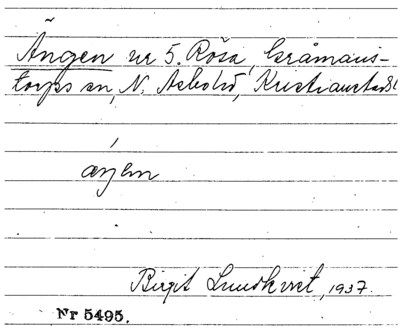 Ängen nr 5. Röså, Gråmans-
torps sn, N. Åsbohd, Kristianstads l
ánjen
Birgit Lundkvist, 1937.
Nr 5495.